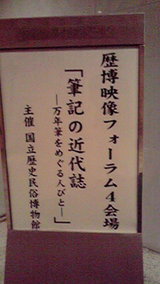 歴博映像フォーラム4会場
「筆記の近代誌
―万年筆をめぐる人びと―」
主催 国立歴史民俗博物館